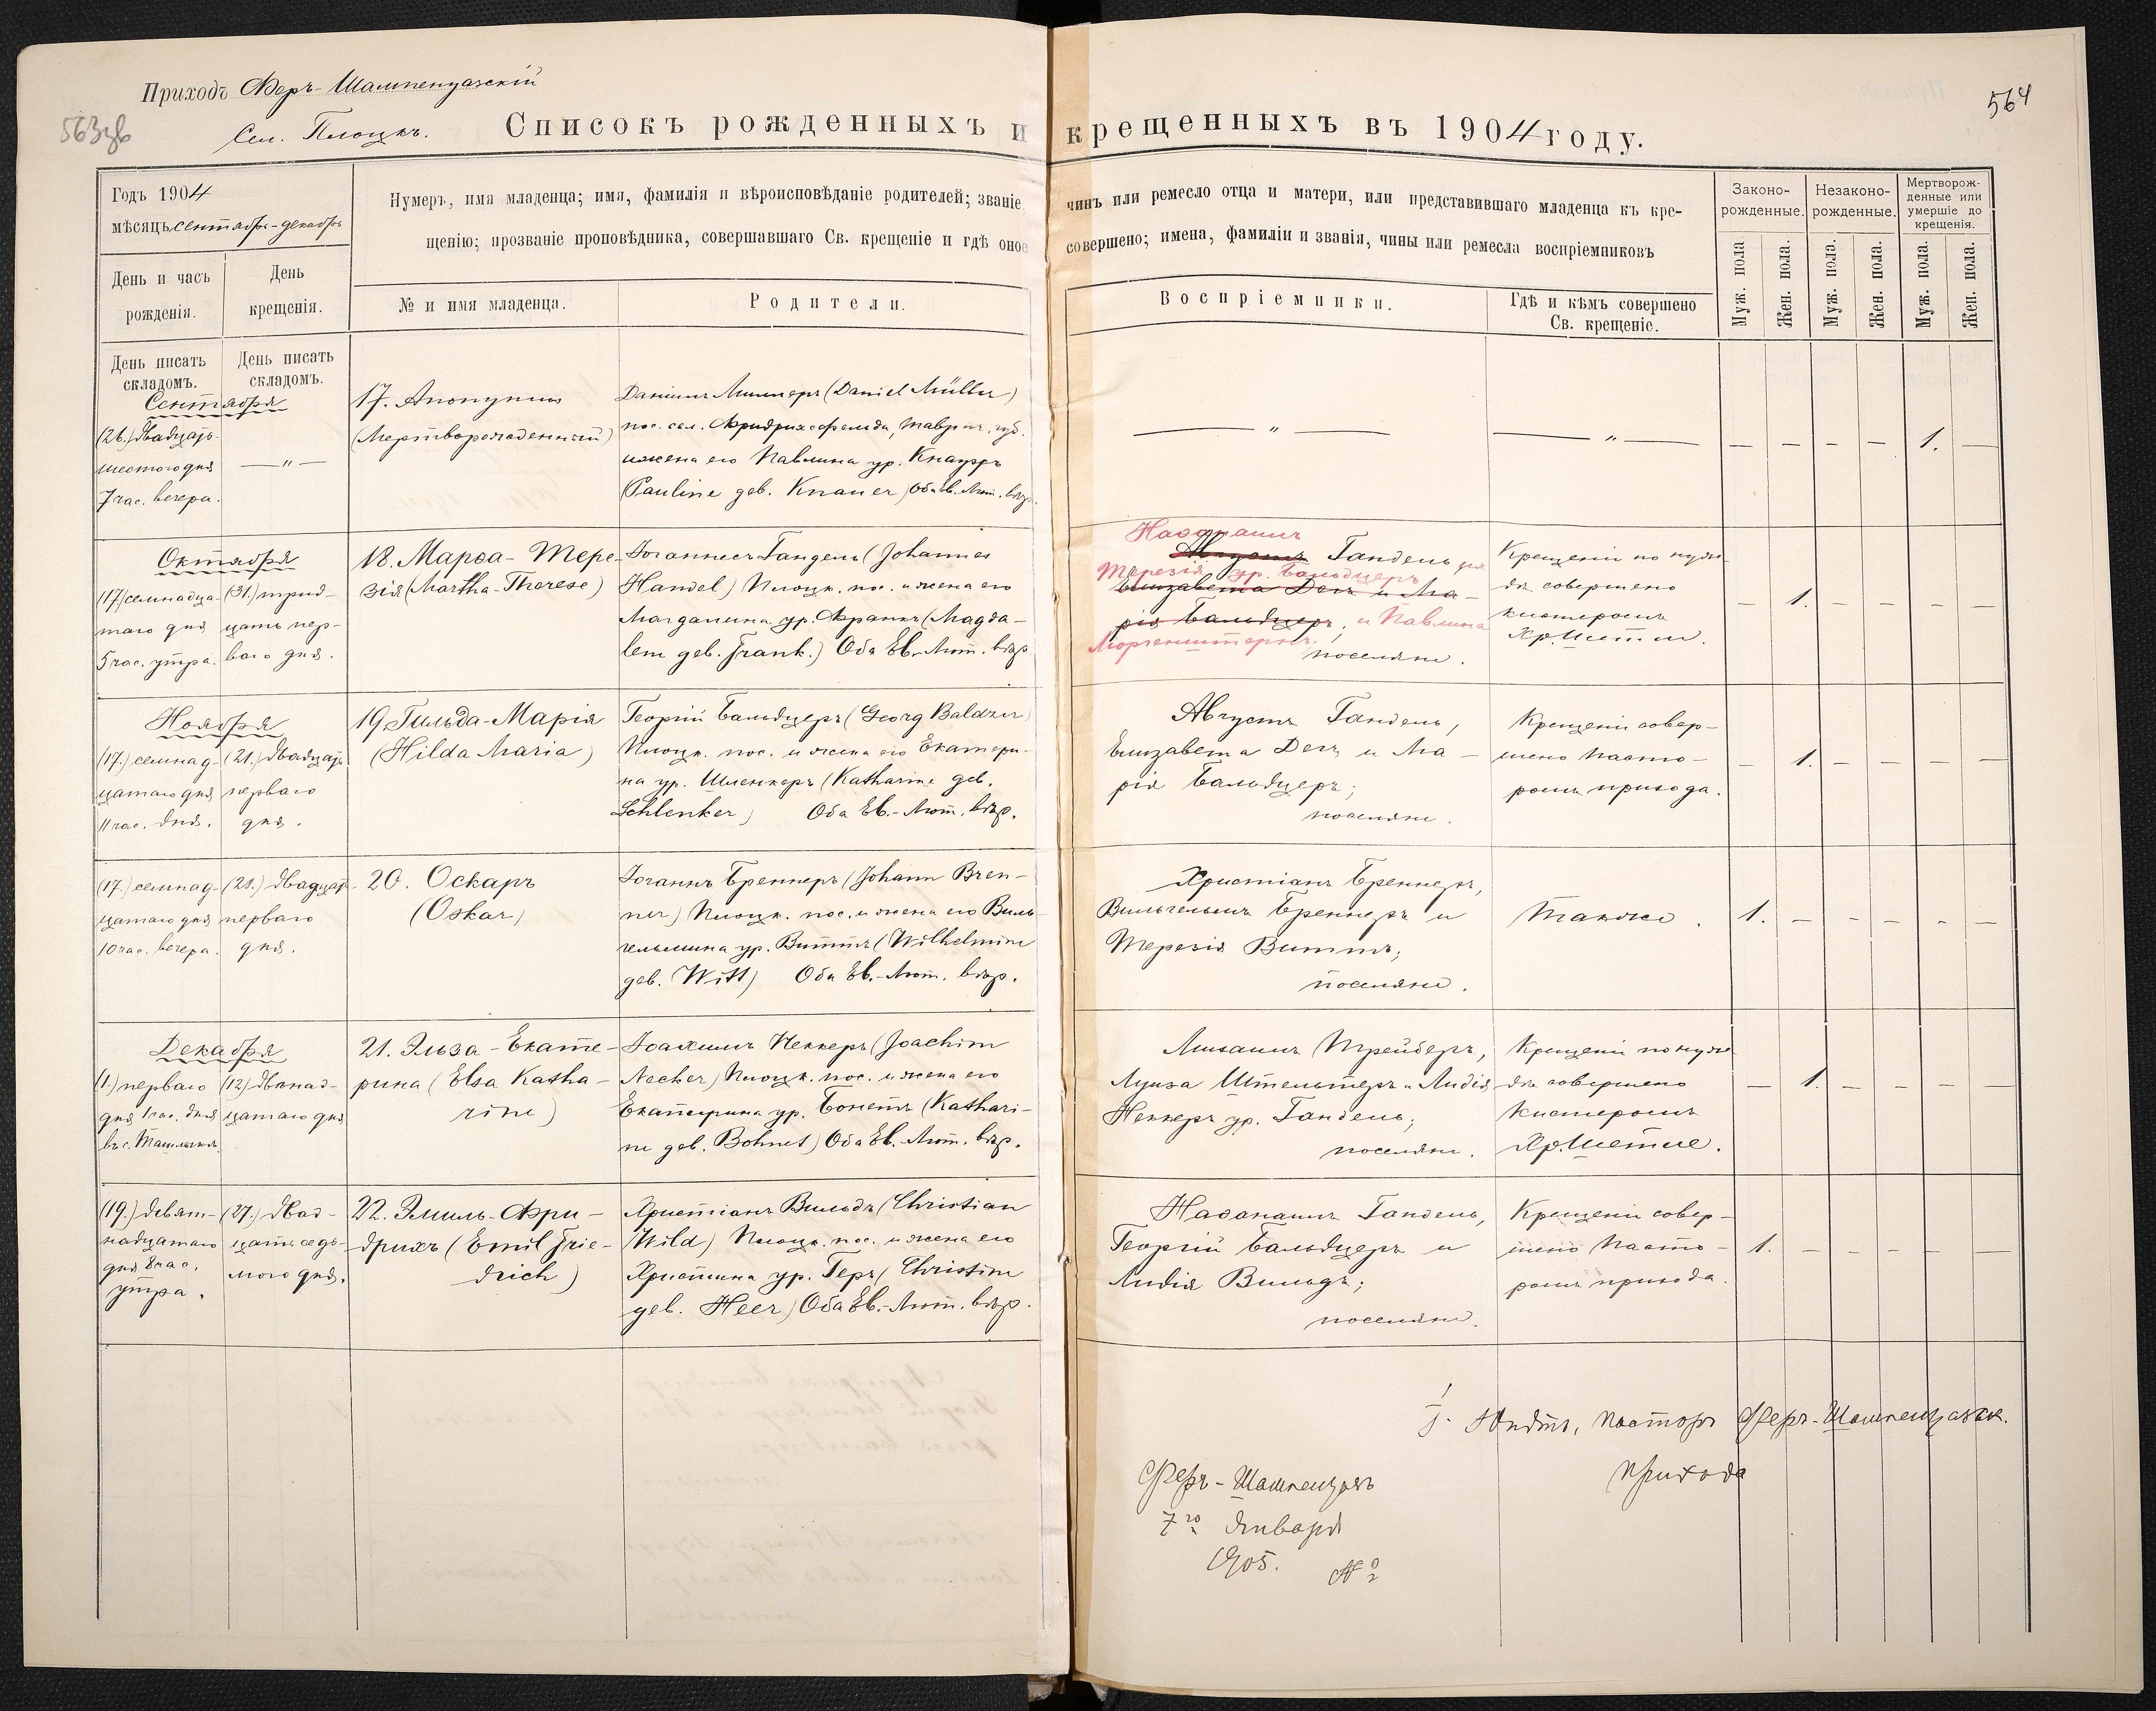 Приходъ Феръ-Шампенуазскій
Сел. Плоцкъ.
563 зв
564
Списокъ рожденныхъ и крещенныхъ въ 1904 году.
Годъ 1904
мѣсяцъ сентябрь-декабрь
Нумеръ, имя младенца; имя, фамилія и вѣроисповѣданіе родителей; званіе,
чинъ или ремесло отца и матери, или представившаго младенца къ кре-
щенію; прозваніе проповѣдника, совершавшаго Св. крещеніе и гдѣ оное
совершено; имена, фамиліи и званія, чины или ремесла воспріемниковъ
Законо-
рожденные.
Незаконо-
рожденные.
Мертворож-
денные или
умершіе до
крещенія.
День и часъ
рожденія.
День
крещенія.
№ и имя младенца.
Родители.
Воспріемники.
Гдѣ и кѣмъ совершено
Св. крещеніе.
Муж. пола
Жен. пола.
Муж. пола.
Жен. пола.
Муж. пола.
Жен. пола.
День писать
складомъ.
День писать
складомъ.
Сентября
(26.) двадцать
шестого дня
7 час. вечера.
— " —
17. Анонимъ
(Мертворожденный)
Даніилъ Миллеръ (Daniel Müller)
пос. сел. Фридрихсфельда, Таврич. губ.
и жена его Павлина ур. Кнауэръ
(Pauline geb. Knauer) Оба Ев. Лют. вѣр.
— " —
— " —
— — — — 1. —
Октября
(17.) семнадца-
таго дня
5 час. утра.
(31.) трид-
цать пер-
ваго дня.
18. Марѳа-Тере-
зія (Martha-Therese)
Іоганнесъ Гандель (Johannes
Handel) Плоцк. пос. и жена его
Магдалина ур. Франкъ (Magda-
lene geb. Frank.) Оба Ев.-Лют. вѣр.
Наѳанаилъ
Августъ Гандель,
Терезія ур. Бальдцеръ
Елизавета Дегъ и Ма-
рія Бальдцеръ, и Павлина
Моргенштернъ;
поселяне.
Крещеніе по нуж-
дѣ совершено
кистеромъ
Хр. Шетле.
— 1. — — — —
Ноября
(17.) семнад-
цатаго дня
11 час. дня.
(21.) двадцать
перваго
дня.
19. Гильда-Марія
(Hilda Maria)
Георгій Бальдцеръ (Georg Baldzer)
Плоцк. пос. и жена его Екатери-
на ур. Шленкеръ (Katharine geb.
Schlenker) Оба Ев.-Лют. вѣр.
Августъ Гандель,
Елизавета Дегъ и Ма-
рія Бальдцеръ;
поселяне.
Крещеніе совер-
шено Пасто-
ромъ прихода.
— 1. — — — —
(17.) семнад-
цатаго дня
10 час. вечера.
(21.) двадцать
перваго
дня.
20. Оскаръ
(Oskar)
Іоганнъ Бреннеръ (Johann Bren-
ner) Плоцк. пос. и жена его Виль-
гельмина ур. Виттъ (Wilhelmine
geb. Witt) Оба Ев.-Лют. вѣр.
Христіанъ Бреннеръ,
Вильгельмъ Бреннеръ и
Терезія Виттъ;
поселяне.
Также.
1. — — — — —
Декабря
(1.) перваго
дня 1 час. дня
въ с. Ташлыкѣ.
(12.) двѣнад-
цатаго дня
21. Эльза-Екате-
рина (Elsa Katha-
rine)
Іоахимъ Неккеръ (Joachim
Necker) Плоцк. пос. и жена его
Екатерина ур. Бонетъ (Kathari-
ne geb. Bohnet) Оба Ев.-Лют. вѣр.
Трейберъ,
Луиза Штельтеръ и Лидія
Неккеръ ур. Гандель;
поселяне.
Крещеніе по нуж-
дѣ совершено
Кистеромъ
Хр. Шетле.
— 1. — — — —
(19.) девят-
надцатаго
дня 8 час.
утра.
(27.) двад-
цать седь-
мого дня.
22. Эмиль-Фри-
дрихъ (Emil Frie-
drich)
Христіанъ Вильдъ (Christian
Wild) Плоцк. пос. и жена его
Христина ур. Геръ (Christine
geb. Heer) Оба Ев.-Лют. вѣр.
Наѳанаилъ Гандель,
Георгій Бальдцеръ и
Лидія Вильдъ;
поселяне.
Крещеніе совер-
шено Пасто-
ромъ прихода.
1. — — — — —
Пасторъ Феръ-Шампенуазск.
прихода
Феръ-Шампенуазъ
7го Января
1905.
№ 2